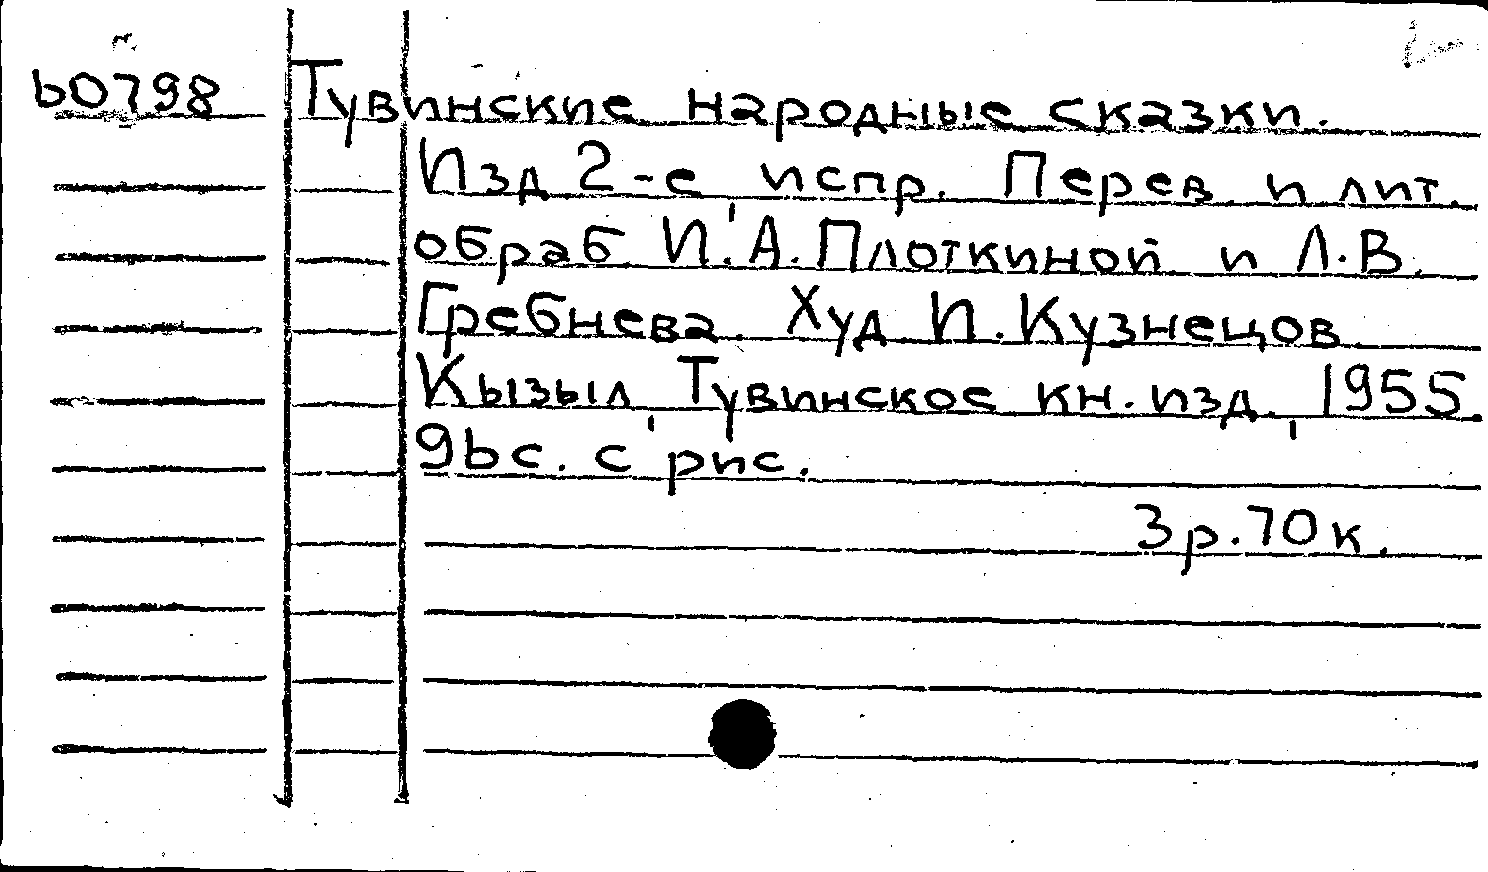 60798 Тувинские народные сказки.
Изд 2-е, испр. Перев. и лит.
обраб И. А. Плоткиной и Л. В.
Гребнева. Худ И. Кузнецов
Кызыл, Тувинское кн. изд., 1955.
96с. с рис.
3р. 70к.